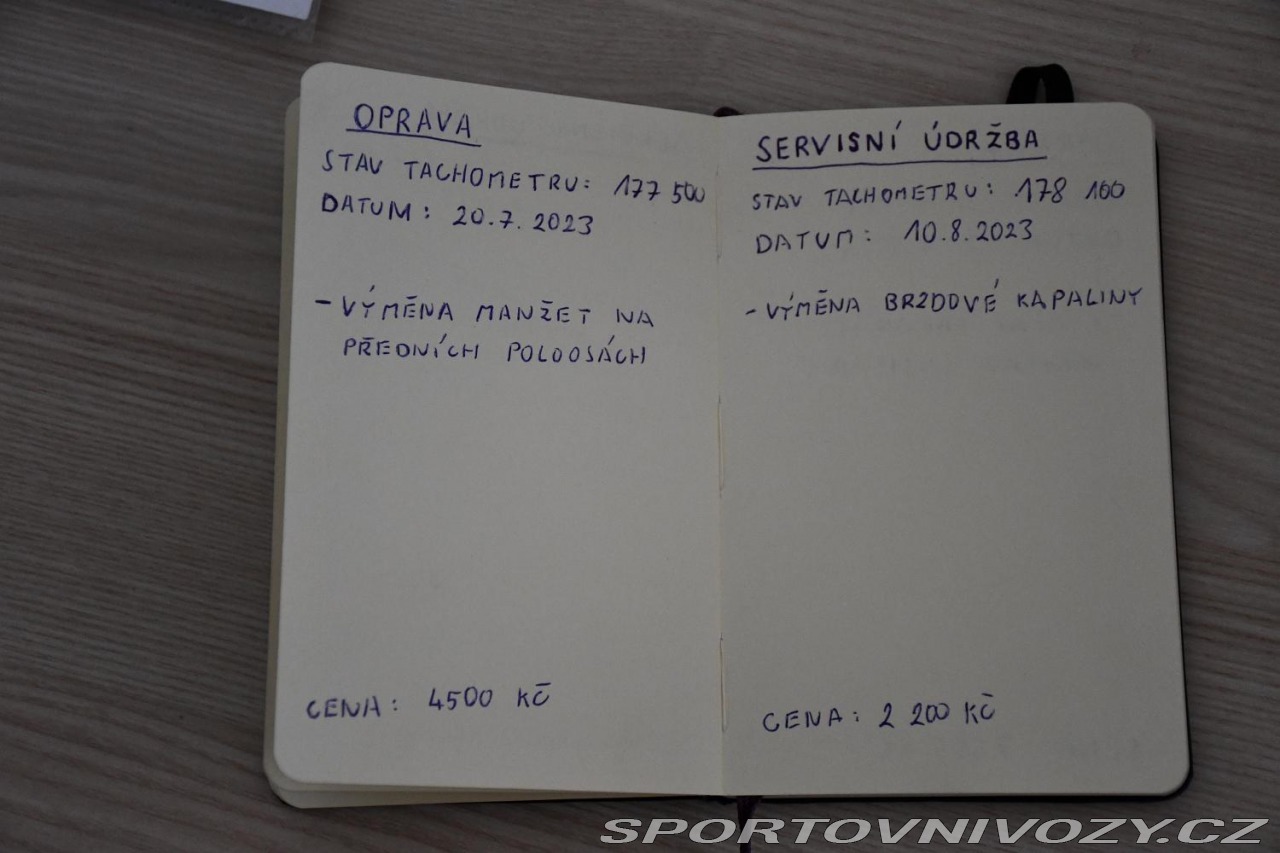 OPRAVA
STAV TACHOMETRU: 177 500
DATUM: 20.7.2023
- VÝMĚNA MANŽET NA
PŘEDNÍCH POLOOSÁCH
CENA: 4500 KČ
SERVISNÍ ÚDRŽBA
STAV TACHOMETRU: 178 100
DATUM: 10.8.2023
- VÝMĚNA BRZDOVÉ KAPALINY
CENA: 2 200 KČ
SPORTOVNIVOZY.CZ